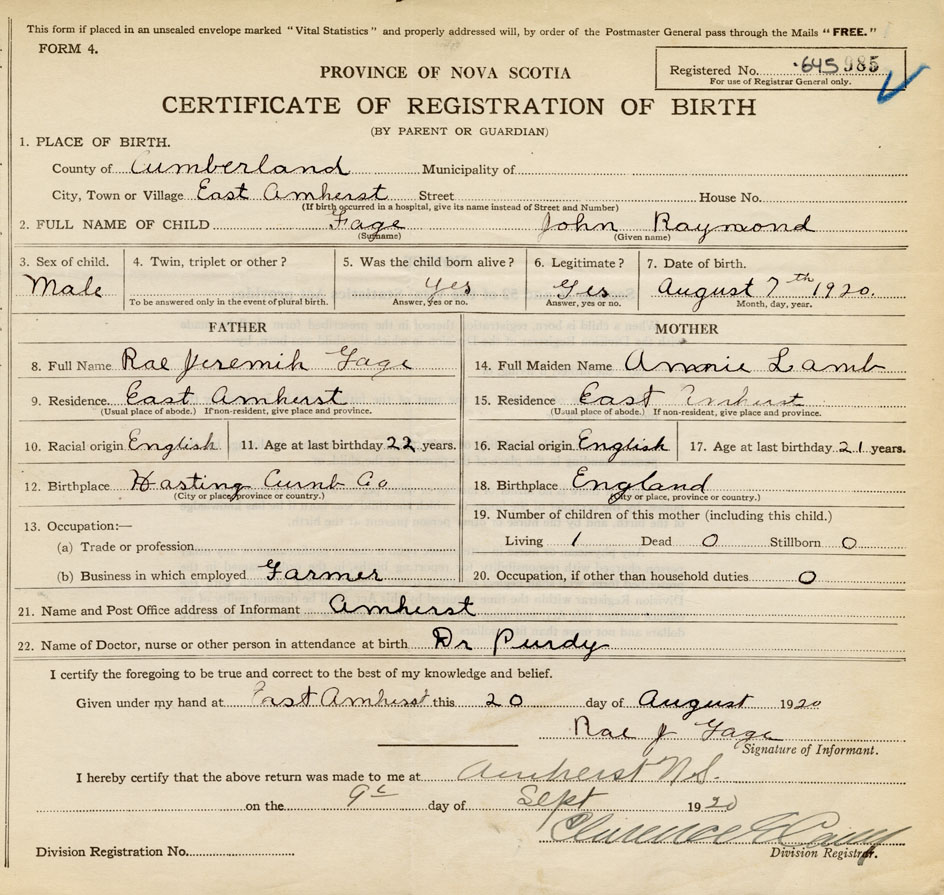 This form if placed in an unsealed envelope marked "Vital Statistics" and properly addressed will, by order of the Postmaster General pass through the Mails "FREE."
FORM 4.
PROVINCE OF NOVA SCOTIA
Registered No. 645985
For use of Registrar General only.
CERTIFICATE OF REGISTRATION OF BIRTH
(BY PARENT OR GUARDIAN)
1. PLACE OF BIRTH.
County of Cumberland Municipality of
City, Town or Village East Amherst Street House No.
(If birth occurred in a hospital, give its name instead of Street and Number)
2. FULL NAME OF CHILD Fage John Raymond
(Surname) (Given name)
3. Sex of child. 4. Twin, triplet or other? 5. Was the child born alive? 6. Legitimate? 7. Date of birth.
Male Yes Yes August 7th 1920.
To be answered only in the event of plural birth. Answer, yes or no. Answer, yes or no. Month, day, year.
FATHER MOTHER
8. Full Name Rae Jeremih Fage 14. Full Maiden Name Annie Lamb
9. Residence East Amherst 15. Residence East Amherst
(Usual place of abode.) If non-resident, give place and province. (Usual place of abode.) If non-resident, give place and province.
10. Racial origin English 11. Age at last birthday 22 years. 16. Racial origin English 17. Age at last birthday 21 years.
12. Birthplace Hasting Cumb Co 18. Birthplace England
(City or place, province or country.) (City or place, province or country.)
13. Occupation:— 19. Number of children of this mother (including this child.)
(a) Trade or profession Living 1 Dead 0 Stillborn 0
(b) Business in which employed Farmer 20. Occupation, if other than household duties 0
21. Name and Post Office address of Informant Amherst
22. Name of Doctor, nurse or other person in attendance at birth Dr Purdy
I certify the foregoing to be true and correct to the best of my knowledge and belief.
Given under my hand at East Amherst this 20 day of August 1920
Rae J Fage
Signature of Informant.
I hereby certify that the above return was made to me at Amherst N.S.
on the 9 day of Sept 1920
Clarence
Division Registration No. Division Registrar.